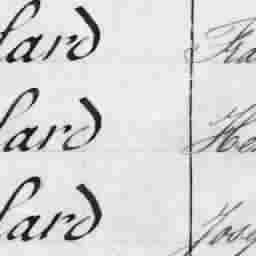 lard Fra
lard Hen
lard Jose